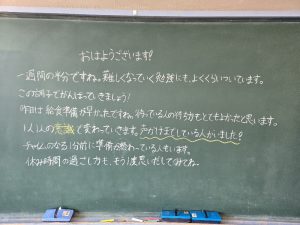 おはようございます!
一週間の半分ですね。難しくなっていく勉強にも、よくくらいついています。
この調子でがんばっていきましょう!
昨日は給食準備が早かったですね。待っている人の待ち方もとてもよかったと思います。
1人1人の意識で変わっていきます。声かけまでしている人がいました?
チャイムのなる1分前に準備が終わっている人もいます。
休み時間の過ごし方も、もう1度思いだしてみてね〜